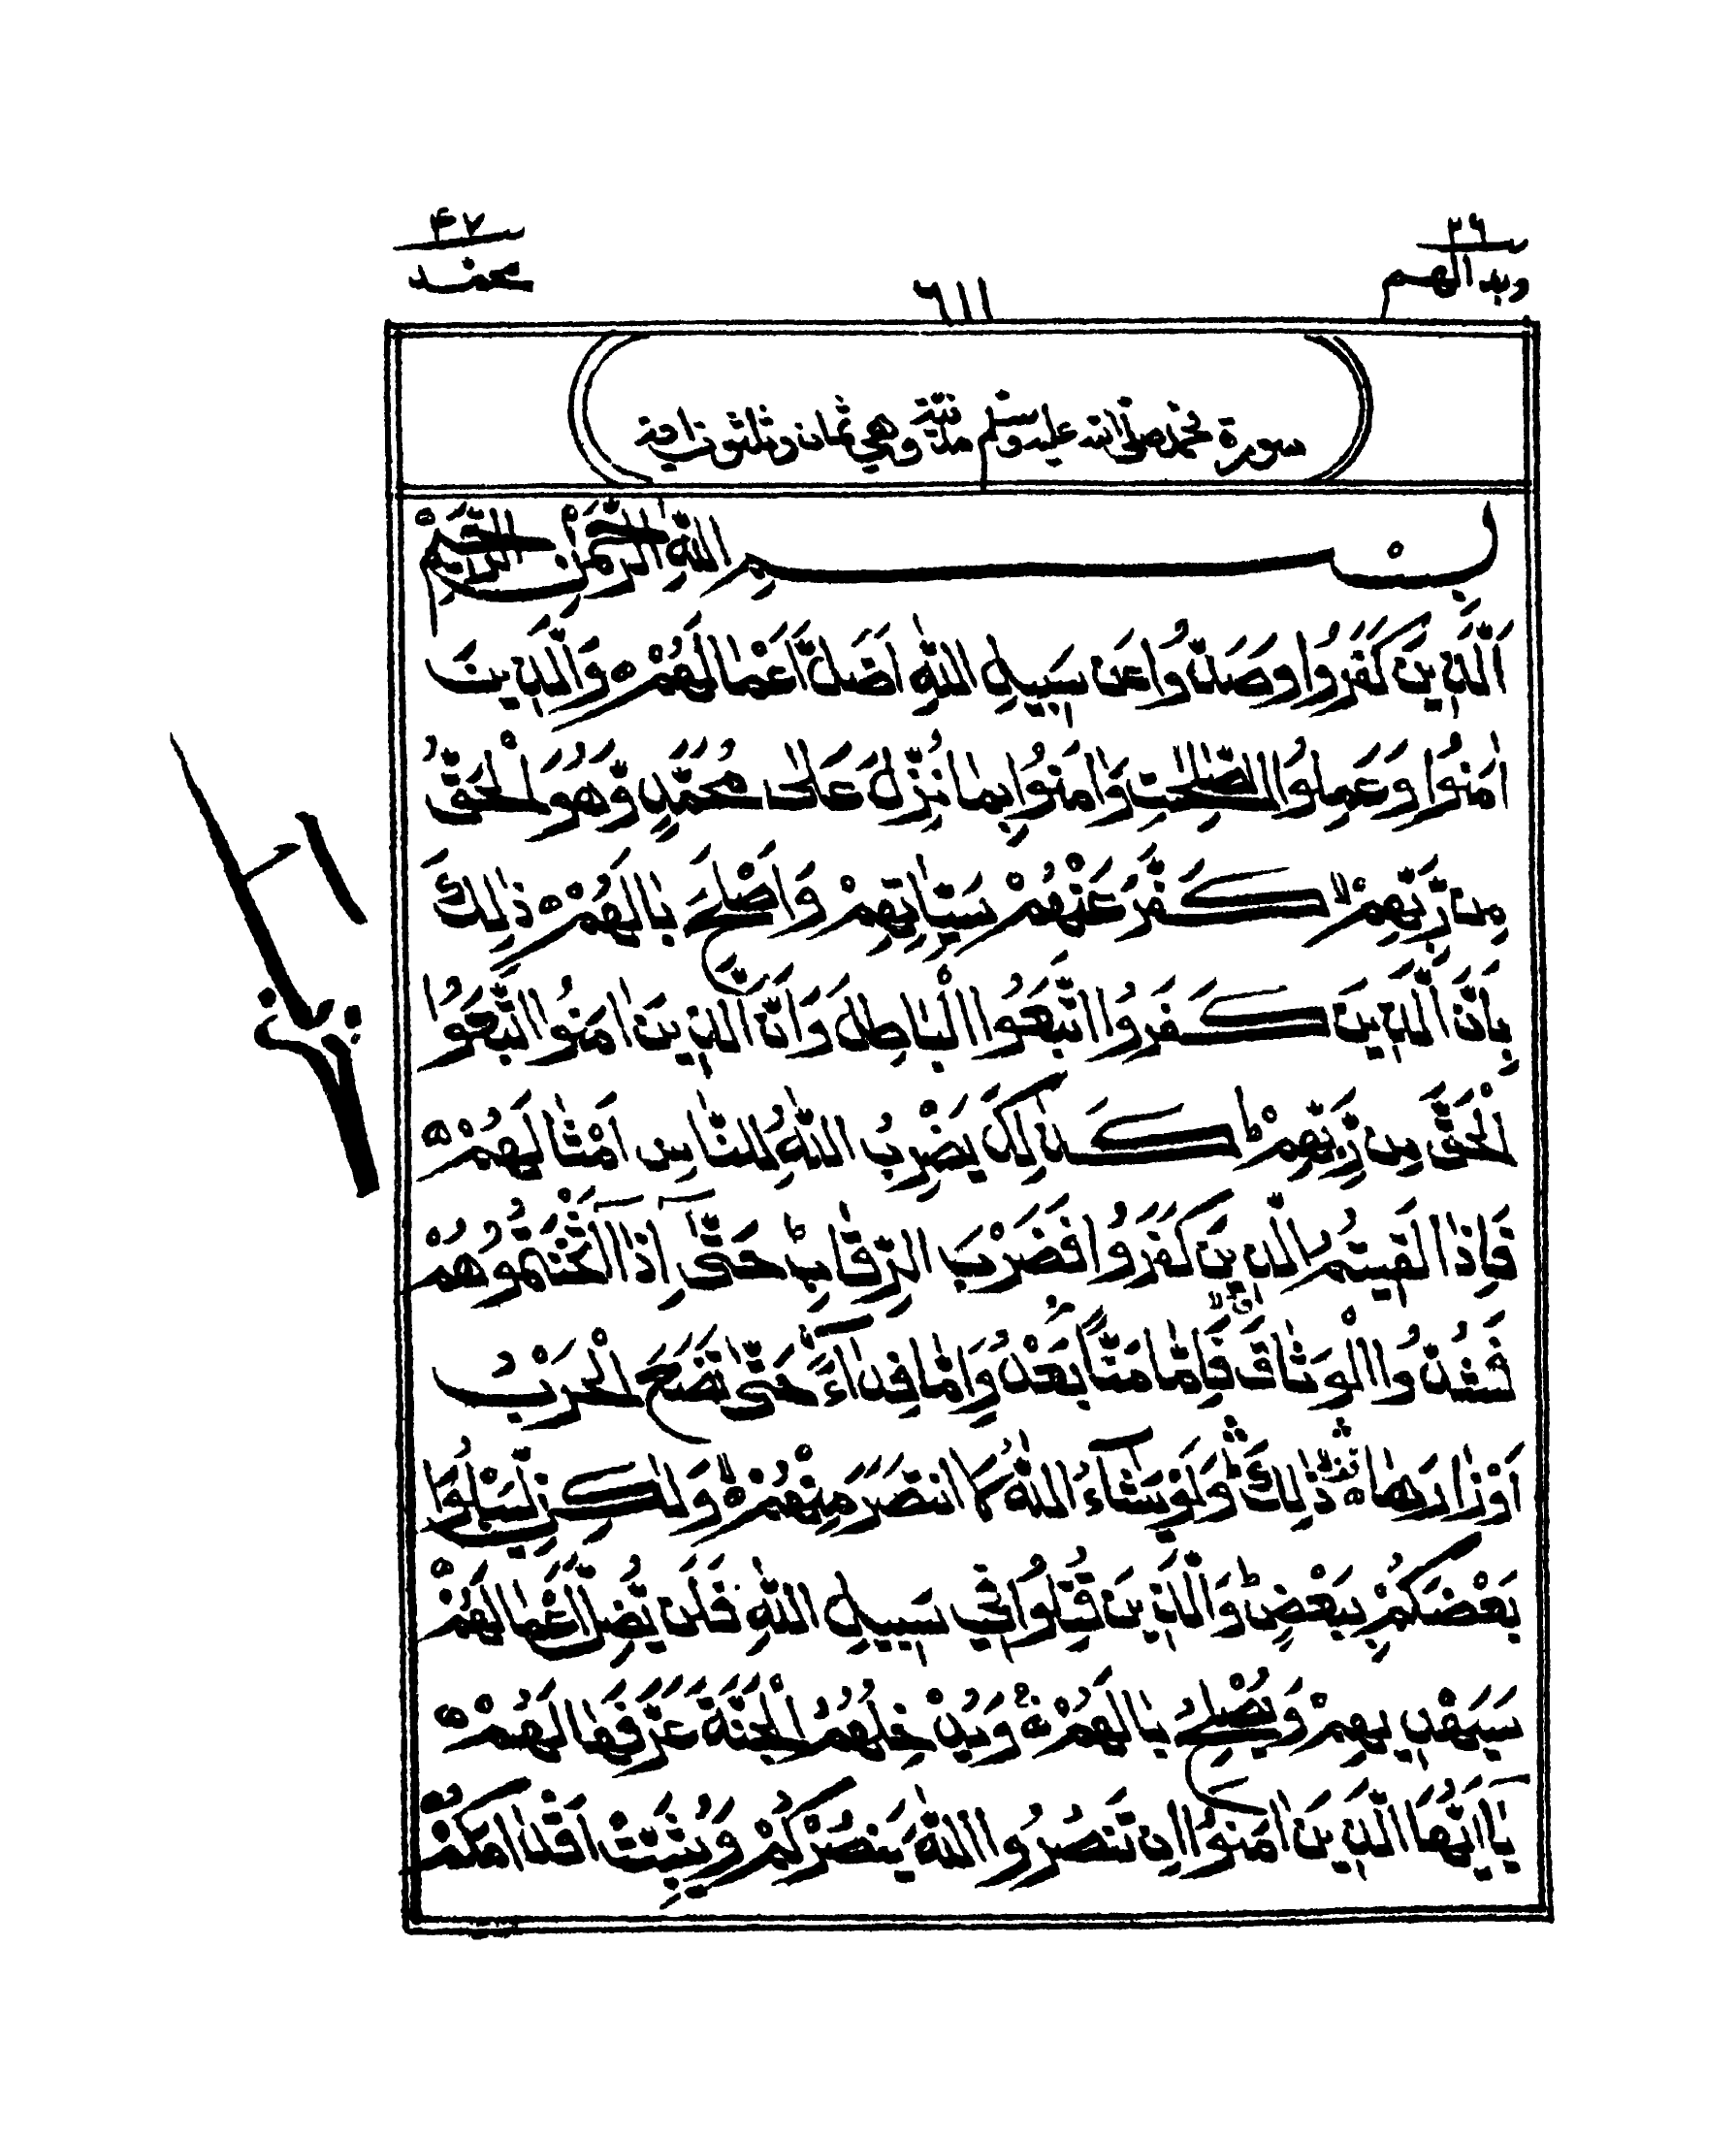 ٢٦
٤٧
محمد
٦١١
سورة محمد صلى الله عليه وسلم مدنية وهي ثمان وثلثون اية
بِسْمِ اللّٰهِ الرَّحْمٰنِ الرَّحِيْمِ
اَلَّذِيْنَ كَفَرُوْا وَصَدُّوْا عَنْ سَبِيْلِ اللّٰهِ اَضَلَّ اَعْمَالَهُمْ ۝ وَالَّذِيْنَ
اٰمَنُوْا وَعَمِلُوا الصّٰلِحٰتِ وَاٰمَنُوْا بِمَا نُزِّلَ عَلٰى مُحَمَّدٍ وَّهُوَ الْحَقُّ
مِنْ رَّبِّهِمْ ۙ كَفَّرَ عَنْهُمْ سَيِّاٰتِهِمْ وَاَصْلَحَ بَالَهُمْ ۝ ذٰلِكَ
بِاَنَّ الَّذِيْنَ كَفَرُوا اتَّبَعُوا الْبَاطِلَ وَاَنَّ الَّذِيْنَ اٰمَنُوا اتَّبَعُوا
الْحَقَّ مِنْ رَّبِّهِمْ ؕ كَذٰلِكَ يَضْرِبُ اللّٰهُ لِلنَّاسِ اَمْثَالَهُمْ ۝
فَاِذَا لَقِيْتُمُ الَّذِيْنَ كَفَرُوْا فَضَرْبَ الرِّقَابِ ؕ حَتّٰۤى اِذَاۤ اَثْخَنْتُمُوْهُمْ
فَشُدُّوا الْوَثَاقَ ۙ فَاِمَّا مَنًّۢا بَعْدُ وَاِمَّا فِدَآءً حَتّٰى تَضَعَ الْحَرْبُ
اَوْزَارَهَا ۝ ذٰلِكَ ؕ وَلَوْ يَشَآءُ اللّٰهُ لَانْتَصَرَ مِنْهُمْ ۙ وَلٰكِنْ لِّيَبْلُوَا
بَعْضَكُمْ بِبَعْضٍ ؕ وَالَّذِيْنَ قُتِلُوْا فِيْ سَبِيْلِ اللّٰهِ فَلَنْ يُّضِلَّ اَعْمَالَهُمْ
سَيَهْدِيْهِمْ وَيُصْلِحُ بَالَهُمْ ۝ وَيُدْخِلُهُمُ الْجَنَّةَ عَرَّفَهَا لَهُمْ ۝
يٰۤاَيُّهَا الَّذِيْنَ اٰمَنُوْۤا اِنْ تَنْصُرُوا اللّٰهَ يَنْصُرْكُمْ وَيُثَبِّتْ اَقْدَامَكُمْ